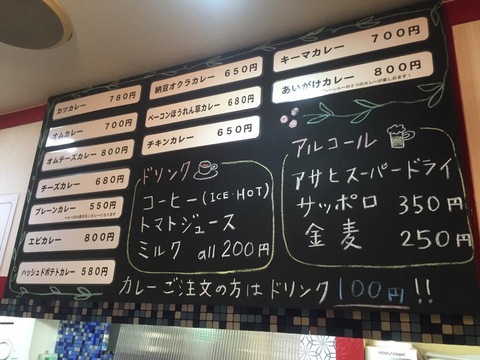 カツカレー 780円
オムカレー 700円
オムチーズカレー 800円
チーズカレー 680円
プレーンカレー 550円
エビカレー 800円
ハッシュドポテトカレー 580円
納豆オクラカレー 650円
ベーコンほうれん草カレー 680円
チキンカレー 650円
キーマカレー 700円
あいがけカレー 800円
ドリンク
コーヒー(ICE・HOT)
トマトジュース
ミルク all200円
アルコール
アサヒスーパードライ
サッポロ 350円
金麦 250円
カレーご注文の方はドリンク100円!!